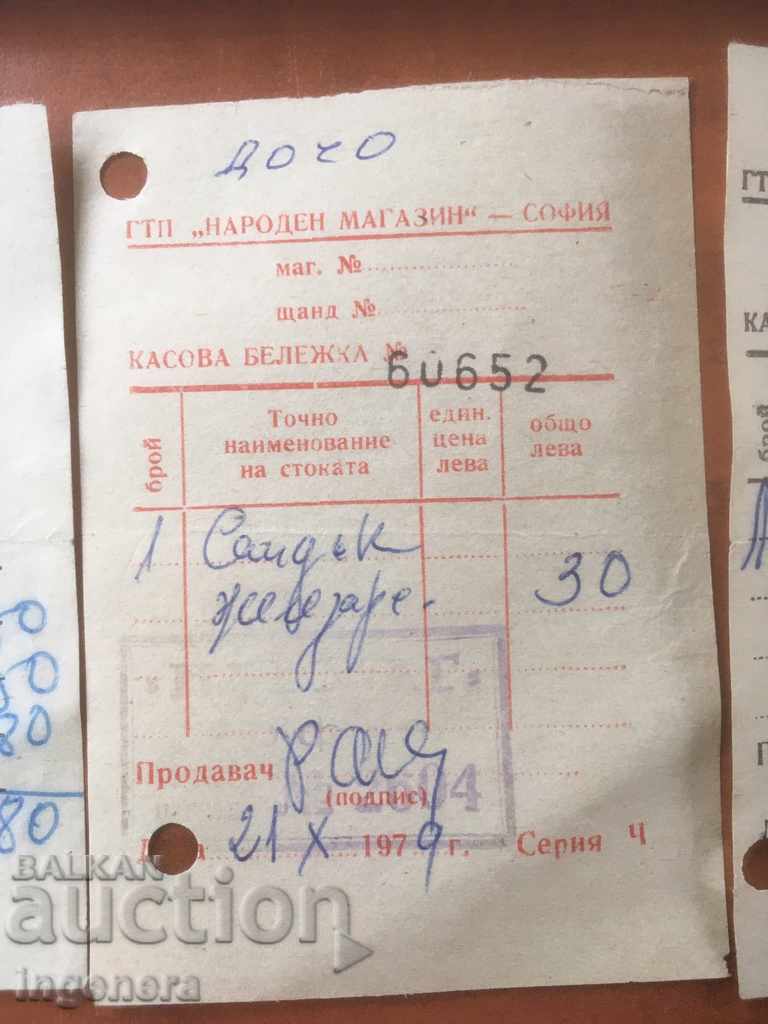 дочо
ГТП „НАРОДЕН МАГАЗИН“ — СОФИЯ
маг. №
щанд №
КАСОВА БЕЛЕЖКА № 60652
брой
Точно наименование на стоката
един. цена лева
общо лева
1 Сандък 30
железаре.
Продавач
(подпис)
21 X 1979 г. Серия Ч
80
ГТ
КА
брой
BALKAN
auction
ingenera